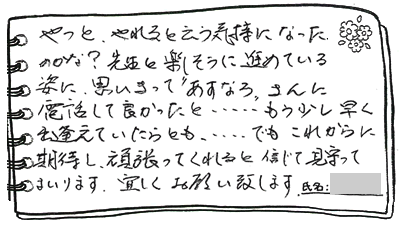 やっと、やれると云う気持になった
のかな？先生と楽しそうに進めている
姿に、思いきって“あすなろ”さんに
電話して良かったと……もう少し早く
出逢えていたらとも……でもこれからに
期待し、頑張ってくれると信じて見守って
まいります。宜しくお願い致します。氏名：